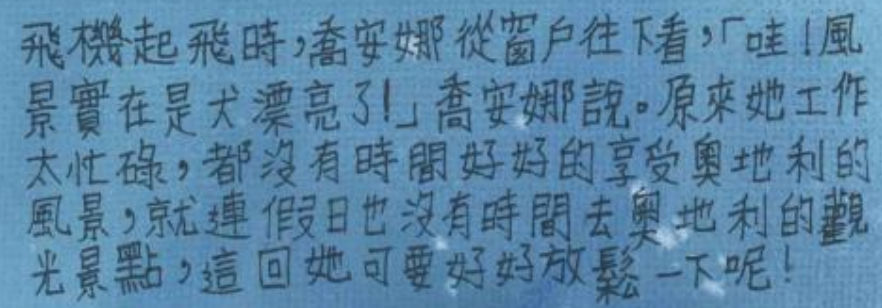 飛機起飛時，喬安娜從窗戶往下看，「哇！風
景實在是犬漂亮了！」喬安娜說。原來她工作
太忙碌，都沒有時間好好的享受奧地利的
風景，就連假日也沒有時間去奧地利的觀
光景點，這回她可要好好放鬆一下呢！